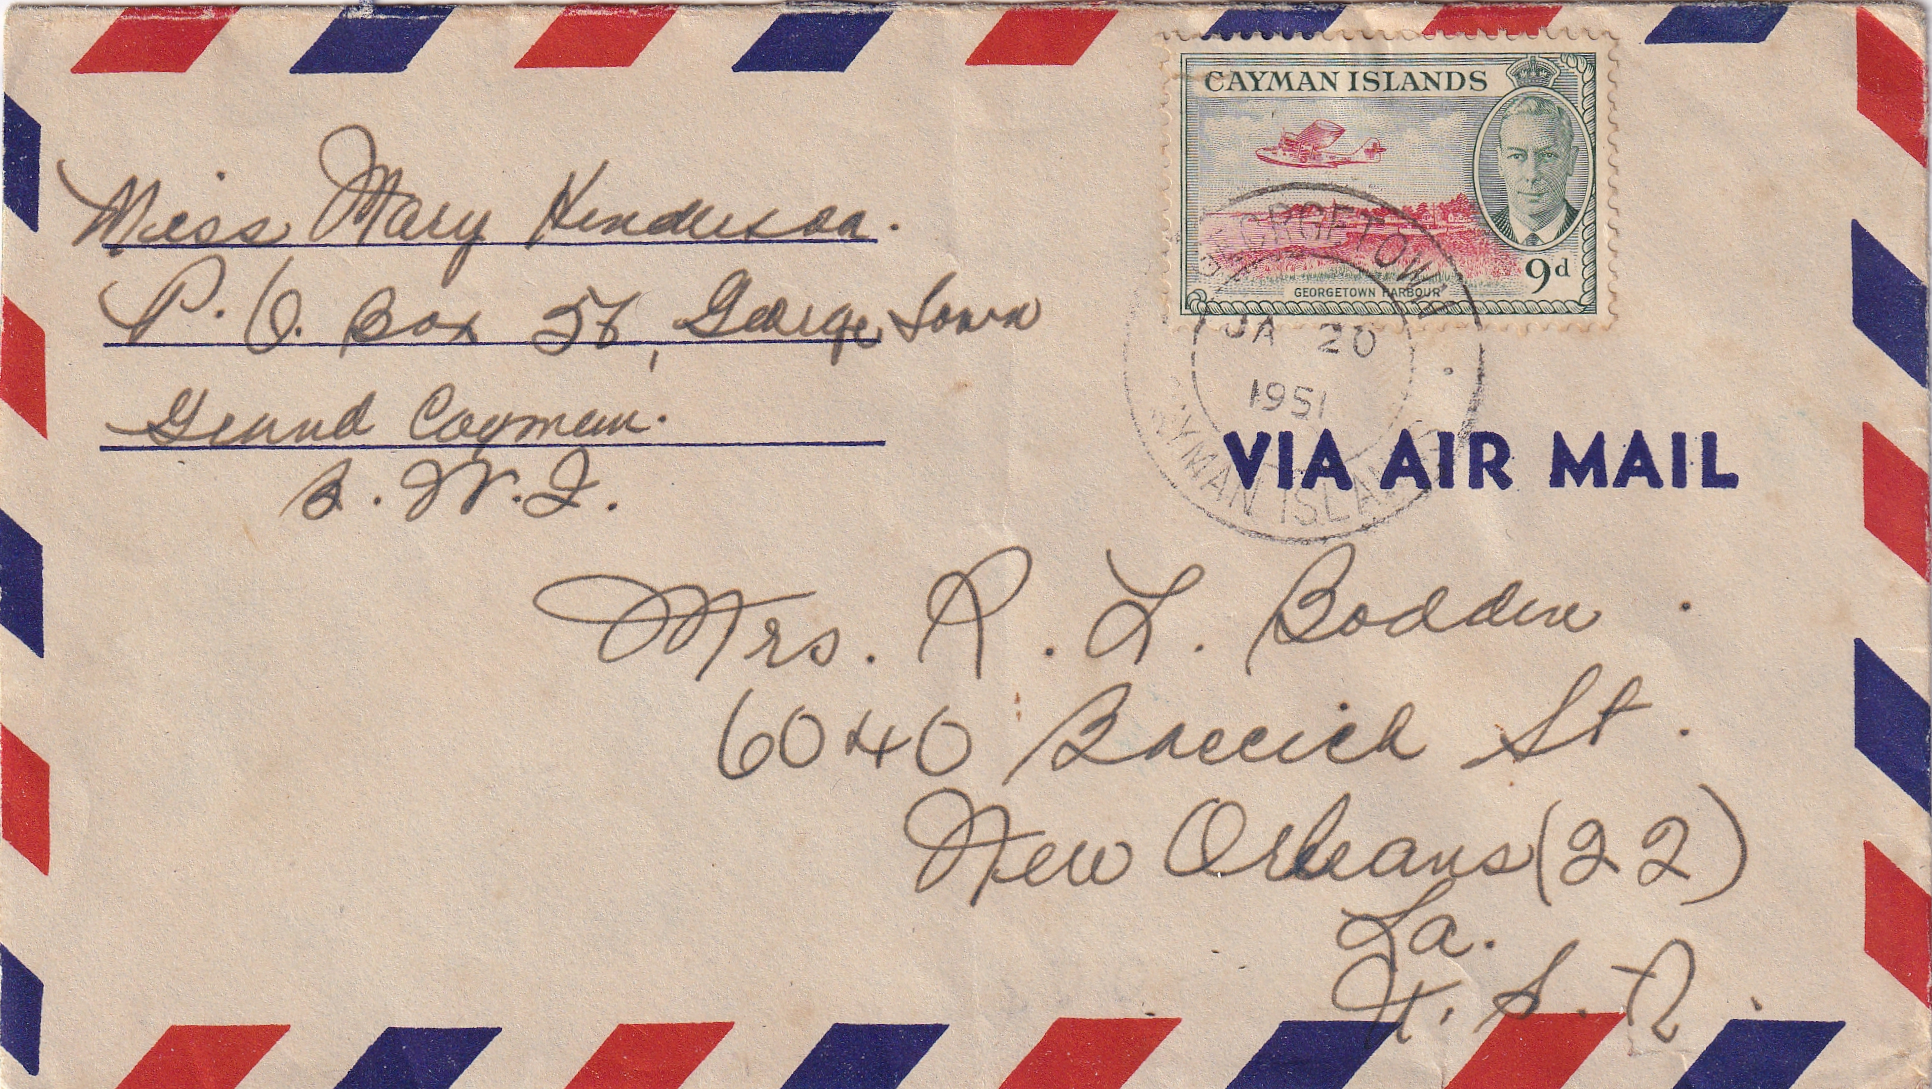 Miss Mary Henderson.
P. O. Box 56, George Town
Grand Cayman.
B. W. I.
CAYMAN ISLANDS
GEORGETOWN HARBOUR
9d
GEORGETOWN
JA 20
1951
CAYMAN ISLANDS
VIA AIR MAIL
Mrs. R. L. Bodden.
6040 St.
New Orleans (22)
La.
U. S. A.